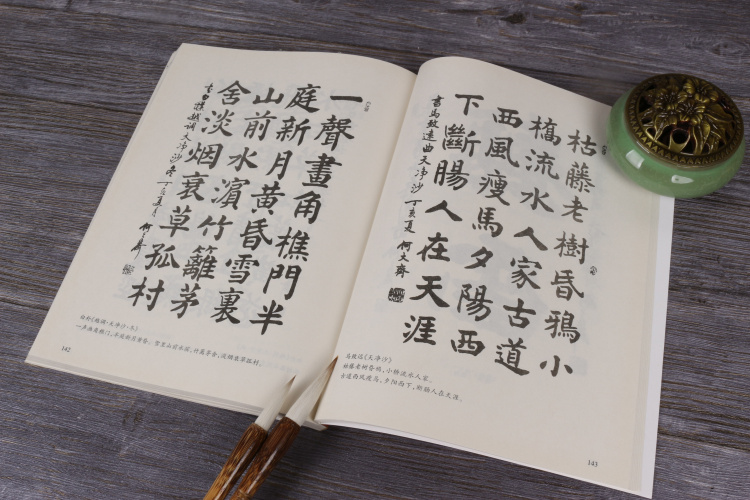 一聲畫角樵門半
庭新月黄昏雪裏
山前水濱竹籬茅
舍淡烟衰草孤村
書白樸越調天净沙冬 丁亥夏月 何文齋
白朴《越调·天净沙·冬》
一声画角樵门,半庭新月黄昏。雪里山前水滨,竹篱茅舍,淡烟衰草孤村。
142
枯藤老樹昏鴉小
橋流水人家古道
西風瘦馬夕陽西
下斷腸人在天涯
書馬致遠曲天净沙 丁亥夏 何文齋
马致远《天净沙》
枯藤老树昏鸦,小桥流水人家。
古道西风瘦马,夕阳西下,断肠人在天涯。
143